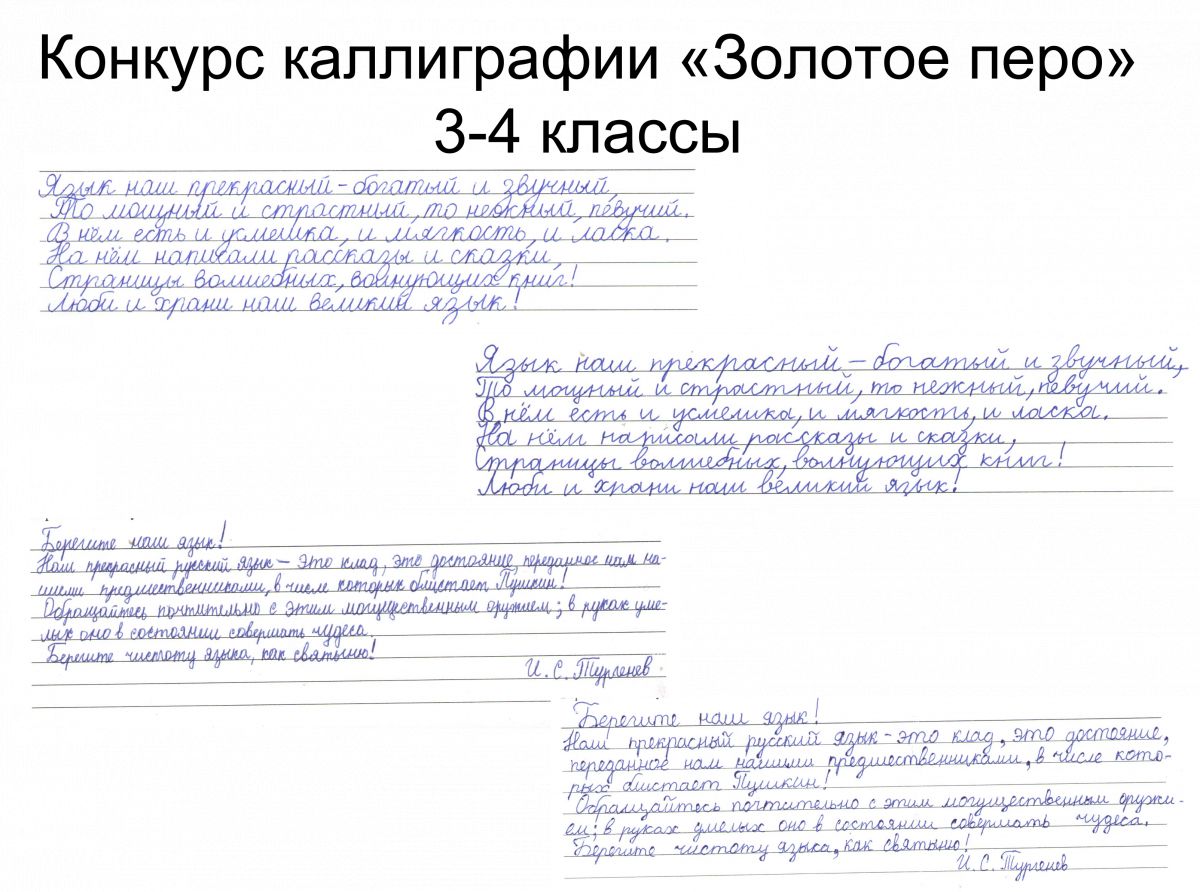 Конкурс каллиграфии «Золотое перо»
3-4 классы
Язык наш прекрасный – богатый и звучный,
То мощный и страстный, то нежный, певучий.
В нём есть и усмешка, и мягкость, и ласка.
На нём написали рассказы и сказки,
Страницы волшебных, волнующих книг!
Люби и храни наш великий язык!
Язык наш прекрасный – богатый и звучный,
То мощный и страстный, то нежный, певучий.
В нём есть и усмешка, и мягкость, и ласка.
На нём написали рассказы и сказки,
Страницы волшебных, волнующих книг!
Люби и храни наш великий язык!
Берегите наш язык!
Наш прекрасный русский язык – это клад, это достояние, переданное нам на-
шими предшественниками, в числе которых блистает Пушкин!
Обращайтесь почтительно с этим могущественным оружием; в руках уме-
лых оно в состоянии совершать чудеса.
Берегите чистоту языка, как святыню!
И. С. Тургенев
Берегите наш язык!
Наш прекрасный русский язык – это клад, это достояние,
переданное нам нашими предшественниками, в числе кото-
рых блистает Пушкин!
Обращайтесь почтительно с этим могущественным оружи-
ем; в руках умелых оно в состоянии совершать чудеса.
Берегите чистоту языка, как святыню!
И. С. Тургенев